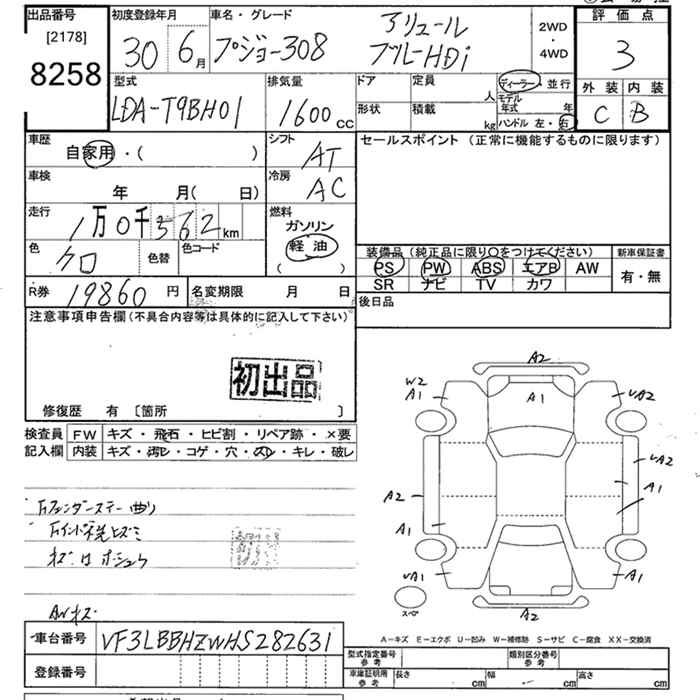 出品番号
[2178]
8258
初度登録年月
30 6月
車名・グレード
プジョー308
アリュール
ブルーHDi
2WD
・
4WD
評価点
3
外装 内装
C B
型式
LDA-T9BH01
排気量
1600cc
ドア 定員 人
形状 積載 kg
ディーラー・並行
モデル年式 年
ハンドル 左・右
車歴
自家用・( )
車検
年 月( 日)
走行
1万0千562km
色
クロ
色替
色コード
シフト
AT
冷房
AC
燃料
ガソリン
軽油
( )
セールスポイント (正常に機能するものに限ります)
装備品 (純正品に限り〇をつけてください)
PS PW ABS エアB AW
SR ナビ TV カワ
新車保証書
有・無
R券 19860円
名変期限 月 日
後日品
注意事項申告欄 (不具合内容等は具体的に記入して下さい)
初出品
修復歴 有 〔箇所 〕
検査員 FW キズ・飛石・ヒビ割・リペア跡・×要
記入欄 内装 キズ・汚レ・コゲ・穴・スレ・キレ・破レ
A2
W2
A1
A1
UA2
UA2
A1
A2
A1
UA1
A1
A2
スペア
A－キズ E－エクボ U－凹み W－補修跡 S－サビ C－腐食 XX－交換済
車台番号 VF3LBBHZWHS282631
登録番号
型式指定番号
参考
類別区分番号
参考
車庫証明用
参考
長さ cm 幅 cm 高さ cm